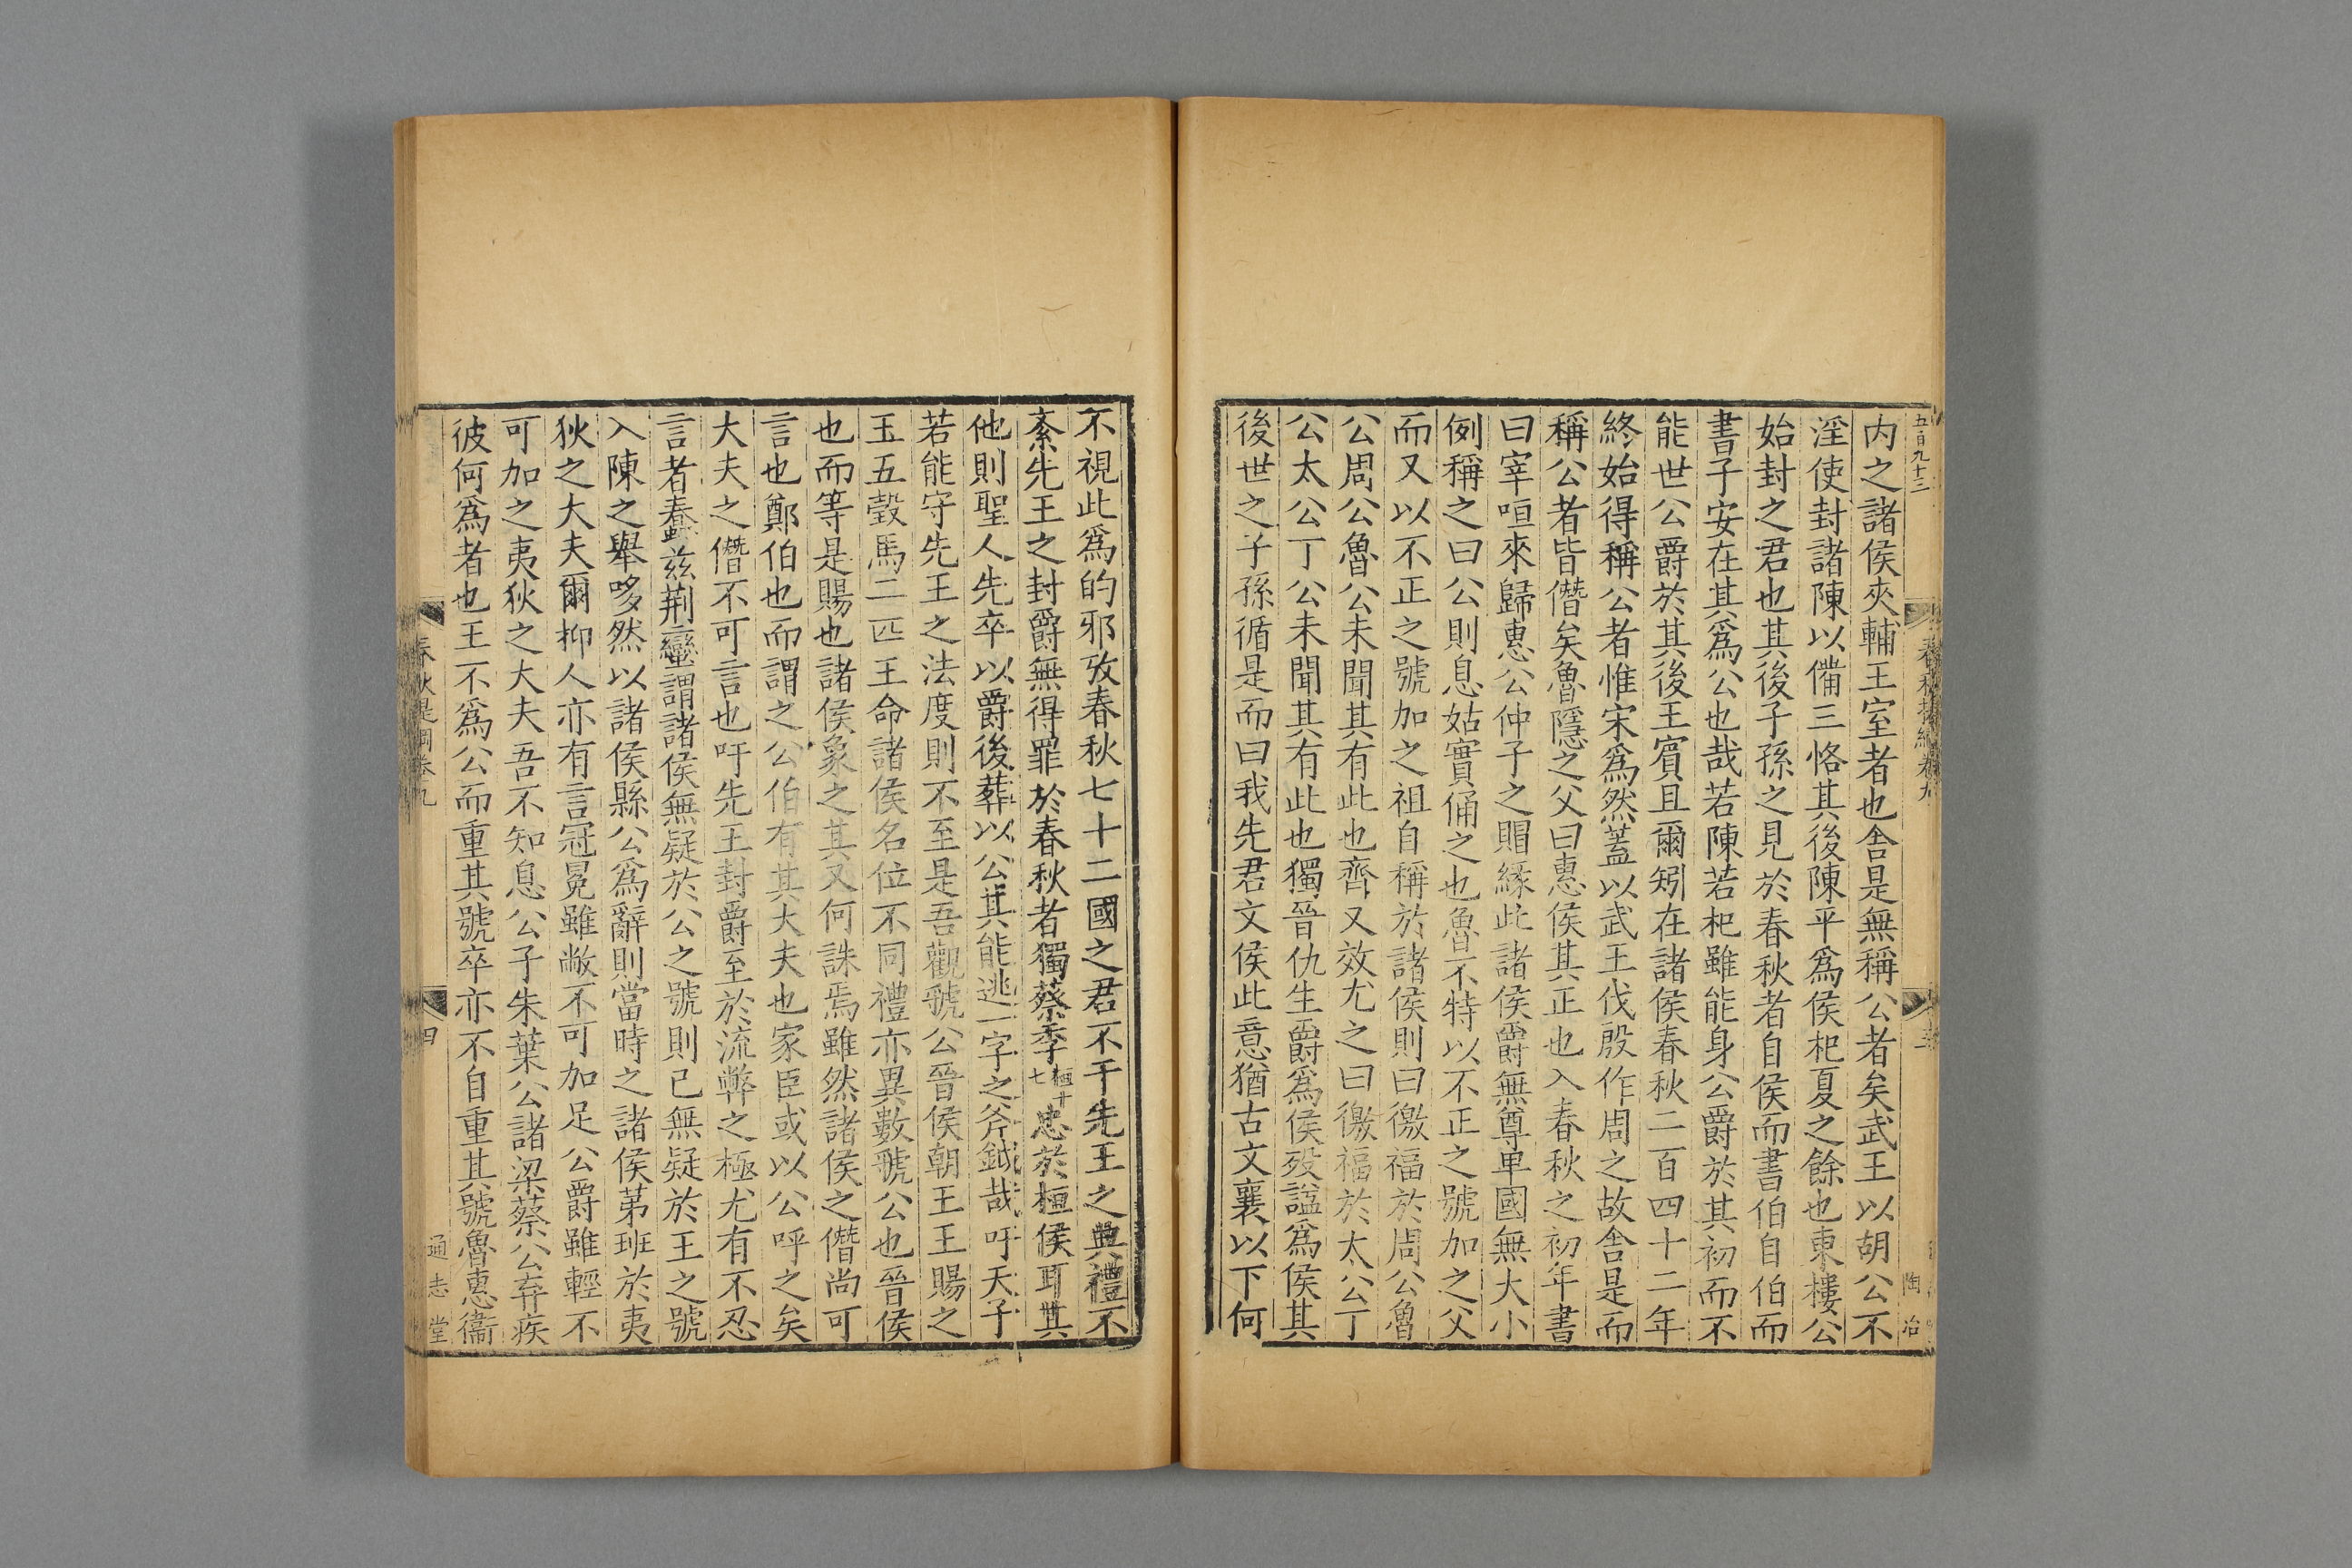 五百九十三
春秋提綱卷九
三
陶冶
内之諸侯夾輔王室者也舍是無稱公者矣武王以胡公不
淫使封諸陳以備三恪其後陳平爲侯杞夏之餘也東樓公
始封之君也其後子孫之見於春秋者自侯而書伯自伯而
書子安在其爲公也哉若陳若杞雖能身公爵於其初而不
能世公爵於其後王賓且爾矧在諸侯春秋二百四十二年
終始得稱公者惟宋爲然蓋以武王伐殷作周之故舍是而
稱公者皆僭矣魯隱之父曰惠侯其正也入春秋之初年書
曰宰咺來歸惠公仲子之賵緣此諸侯爵無尊卑國無大小
例稱之曰公則息姑實俑之也魯不特以不正之號加之父
而又以不正之號加之祖自稱於諸侯則曰徼福於周公魯
公周公魯公未聞其有此也齊又效尤之曰徼福於太公丁
公太公丁公未聞其有此也獨晉仇生爵爲侯殁謚爲侯其
後世之子孫循是而曰我先君文侯此意猶古文襄以下何
不視此爲的邪攷春秋七十二國之君不干先王之典禮不
紊先王之封爵無得罪於春秋者獨蔡季桓十七忠於桓侯耳其
他則聖人先卒以爵後葬以公其能逃一字之斧鉞哉吁天子
若能守先王之法度則不至是吾觀虢公晉侯朝王王賜之
玉五瑴馬二匹王命諸侯名位不同禮亦異數虢公也晉侯
也而等是賜也諸侯象之其又何誅焉雖然諸侯之僭尚可
言也鄭伯也而謂之公伯有其大夫也家臣或以公呼之矣
大夫之僭不可言也吁先王封爵至於流弊之極尤有不忍
言者蠢兹荆蠻謂諸侯無疑於公之號則已無疑於王之號
入陳之舉哆然以諸侯縣公爲辭則當時之諸侯苐班於夷
狄之大夫爾抑人亦有言冠冕雖敝不可加足公爵雖輕不
可加之夷狄之大夫吾不知息公子朱葉公諸梁蔡公弃疾
彼何爲者也王不爲公而重其號卒亦不自重其號魯惠衞
春秋提綱卷九
四
通志堂